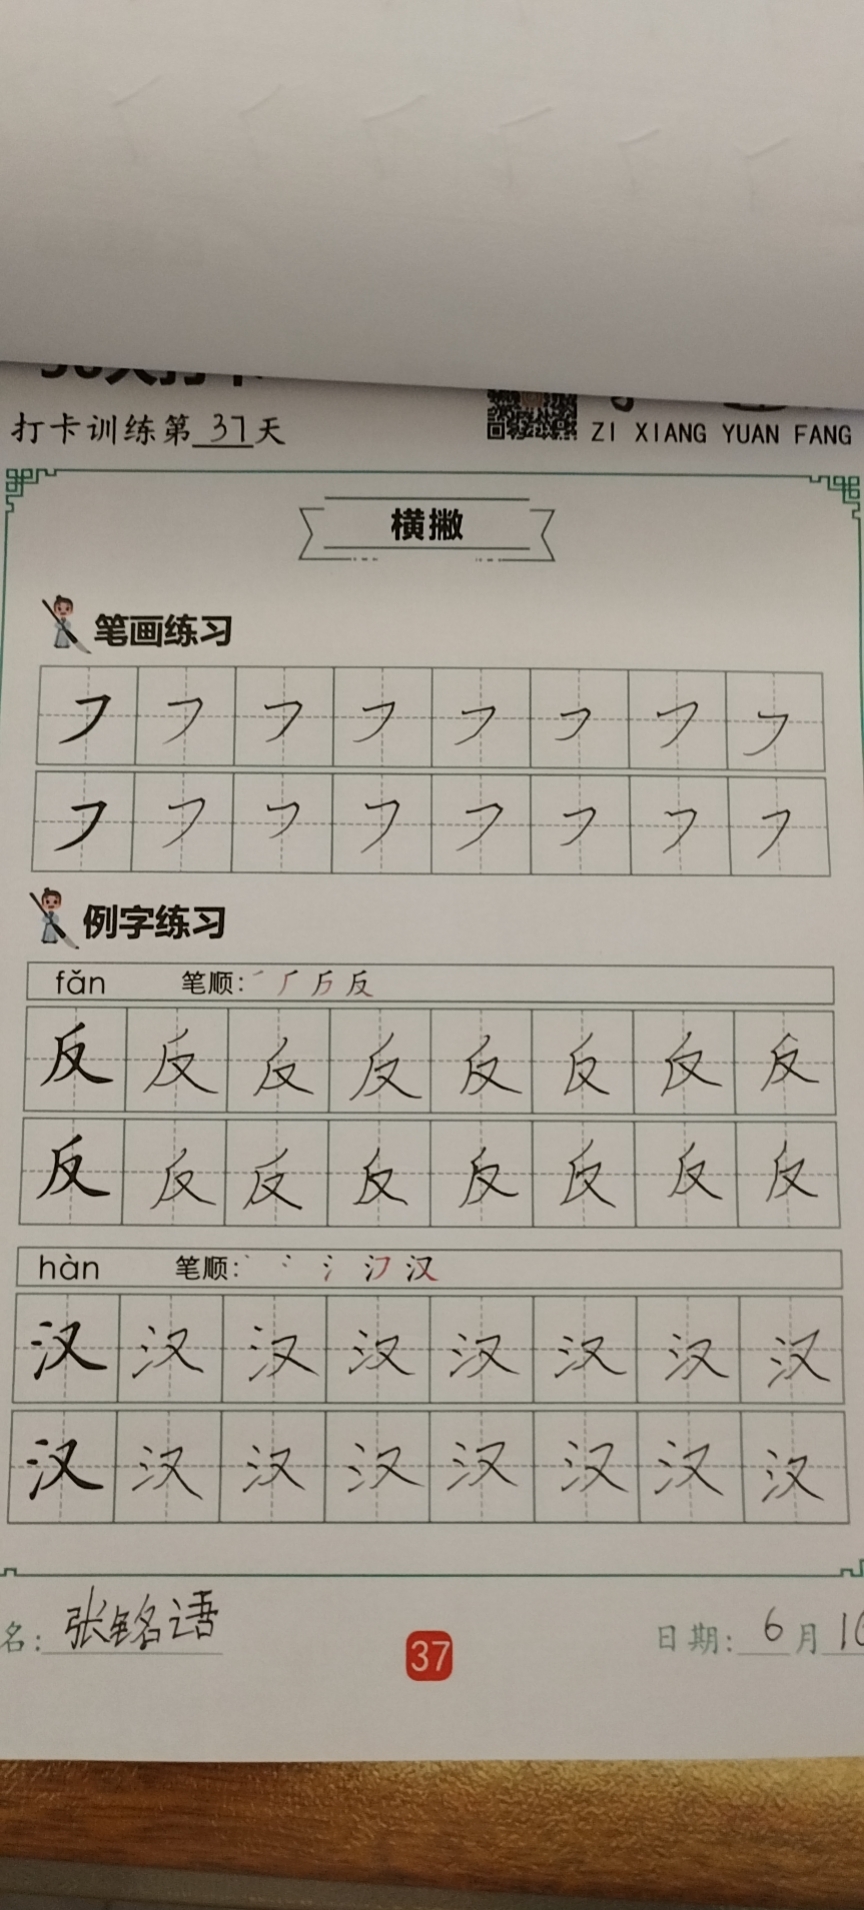 打卡训练第37天
ZI XIANG YUAN FANG
横撇
笔画练习
㇇ ㇇ ㇇ ㇇ ㇇ ㇇ ㇇ ㇇
㇇ ㇇ ㇇ ㇇ ㇇ ㇇ ㇇ ㇇
例字练习
fǎn 笔顺: 反
反 反 反 反 反 反 反 反
反 反 反 反 反 反 反 反
hàn 笔顺: 汉
汉 汉 汉 汉 汉 汉 汉 汉
汉 汉 汉 汉 汉 汉 汉 汉
名: 张铭语
37
日期: 6月